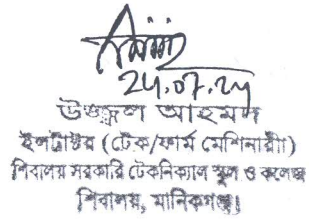 24.07.24
উজ্জ্বল আহমদ
ইন্সট্রাক্টর (টেক/ফার্ম মেশিনারী)
শিবালয় সরকারি টেকনিক্যাল স্কুল ও কলেজ
শিবালয়, মানিকগঞ্জ।